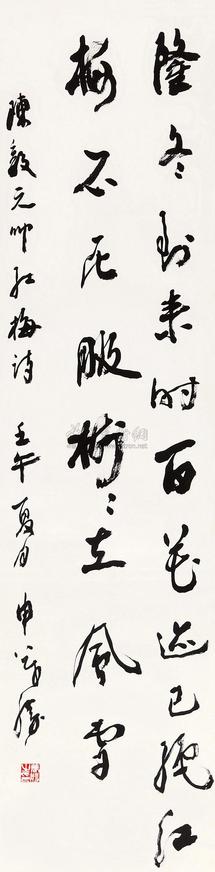 隆冬到来时百花迹已绝红
梅不屈服树々立风雪
陳毅元帅红梅诗 壬午夏月 申万胜